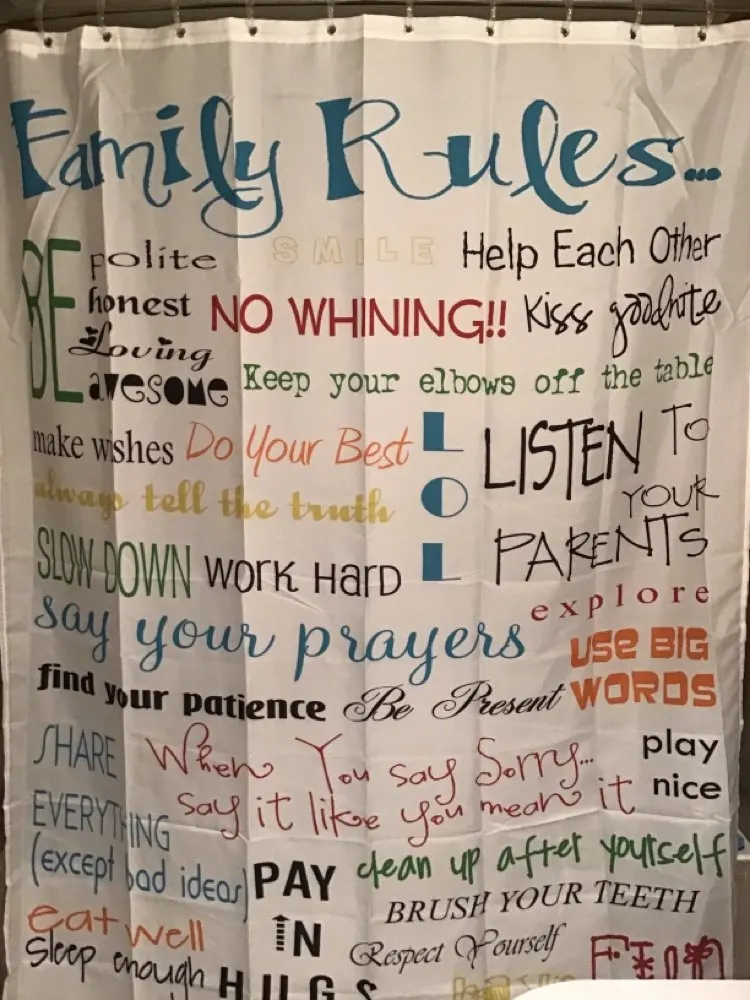 Family Rules...
SMILE
Help Each Other
BE
polite
honest
Loving
awesome
NO WHINING!!
Kiss goodnite
Keep your elbows off the table
make wishes
Do Your Best
LOL
LISTEN To
YOUR
PARENTS
always tell the truth
SLOW DOWN
Work Hard
explore
say your prayers
USE BIG
WORDS
find your patience
Be Present
SHARE
EVERYTHING
(except bad ideas)
When You say Sorry...
say it like you mean it
play
nice
PAY
IN
HUGS
clean up after yourself
BRUSH YOUR TEETH
eat well
Sleep enough
Respect Yourself